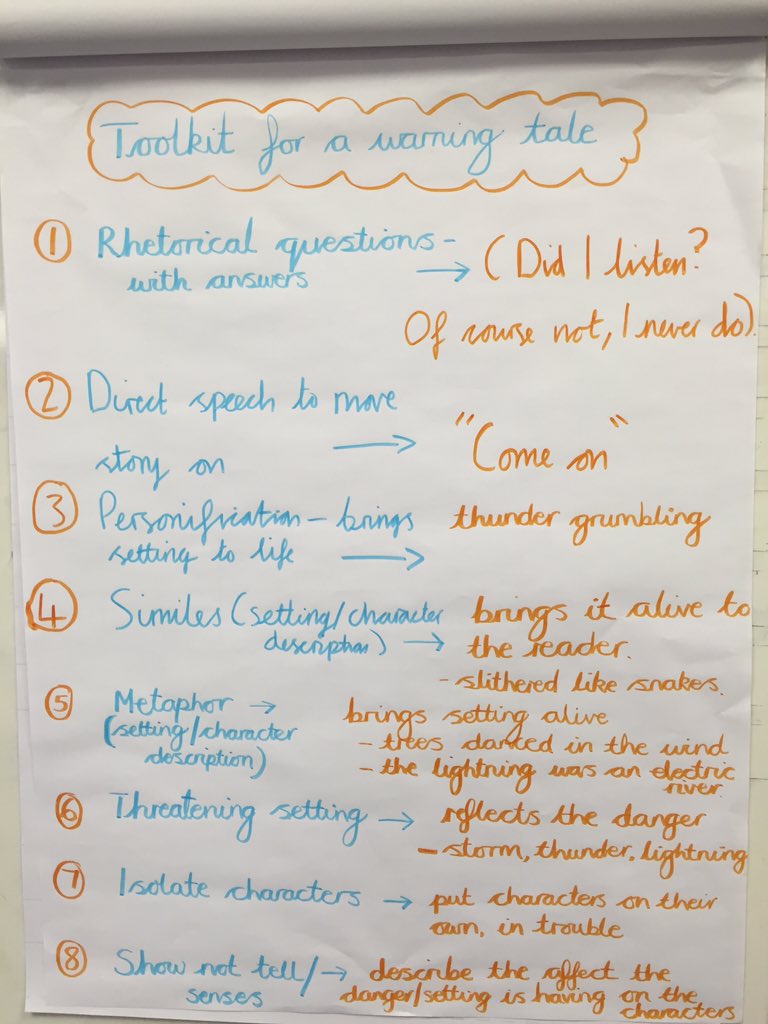 Toolkit for a warning tale
① Rhetorical questions - (Did I listen?
with answers →
Of course not, I never do).
② Direct speech to move
story on → "Come on"
③ Personification - brings thunder grumbling
setting to life →
④ Similes (setting/character brings it alive to
description) → the reader.
- slithered like snakes.
⑤ Metaphor → brings setting alive
(setting/character - trees danced in the wind
description) - the lightning was an electric
river.
⑥ Threatening setting → reflects the danger
- storm, thunder, lightning
⑦ Isolate characters → put characters on their
own, in trouble
⑧ Show not tell/ → describe the affect the
senses danger/setting is having on the
characters